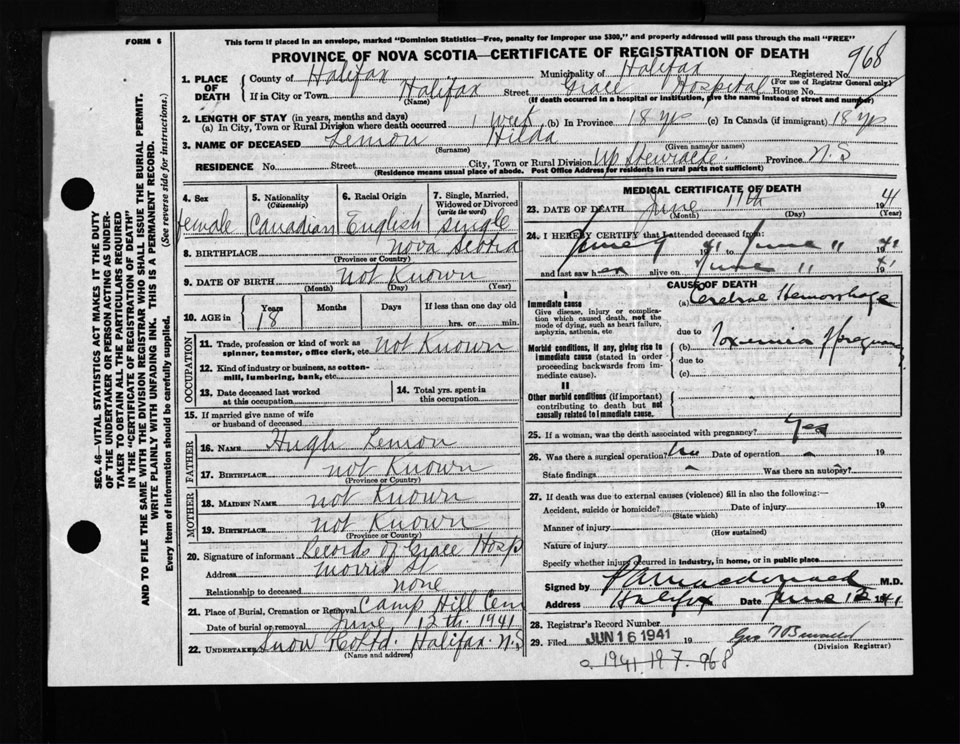 FORM 6
This form if placed in an envelope, marked "Dominion Statistics—Free, penalty for improper use $300," and properly addressed will pass through the mail "FREE"
PROVINCE OF NOVA SCOTIA—CERTIFICATE OF REGISTRATION OF DEATH
968
1. PLACE OF DEATH County of Halifax Municipality of Halifax Registered No.
(For use of Registrar General only)
If in City or Town Halifax Street Grace Hospital House No.
(Name) (If death occurred in a hospital or institution, give the name instead of street and number)
2. LENGTH OF STAY (in years, months and days)
(a) In City, Town or Rural Division where death occurred 1 week (b) In Province 18 yrs (c) In Canada (if immigrant) 18 yrs
3. NAME OF DECEASED Lemon Hilda
(Surname) (Given name or names)
RESIDENCE No. Street City, Town or Rural Division Up Stewiacke. Province N.S
(Residence means usual place of abode. Post Office Address for Residents in rural parts not sufficient)
SEC. 46—VITAL STATISTICS ACT MAKES IT THE DUTY
OF THE UNDERTAKER OR PERSON ACTING AS UNDERTAKER TO OBTAIN ALL THE PARTICULARS REQUIRED
IN THE "CERTIFICATE OF REGISTRATION OF DEATH"
AND TO FILE THE SAME WITH THE DIVISION REGISTRAR WHO SHALL ISSUE THE BURIAL PERMIT.
WRITE PLAINLY WITH UNFADING INK. THIS IS A PERMANENT RECORD.
Every item of information should be carefully supplied. (See reverse side for instructions.)
4. Sex
female
5. Nationality
(Citizenship)
Canadian
6. Racial Origin
English
7. Single, Married, Widowed or Divorced
(write the word)
single
8. BIRTHPLACE Nova Scotia
(Province or Country)
9. DATE OF BIRTH not Known
(Month) (Day) (Year)
10. AGE in Years Months Days If less than one day old
18 hrs. or min.
OCCUPATION
11. Trade, profession or kind of work as
spinner, teamster, office clerk, etc. not Known
12. Kind of industry or business, as cotton-
mill, lumbering, bank, etc.
13. Date deceased last worked
at this occupation
14. Total yrs. spent in
this occupation
15. If married give name of wife
or husband of deceased
FATHER
16. NAME Hugh Lemon
17. BIRTHPLACE not Known
(Province or Country)
MOTHER
18. MAIDEN NAME not Known
19. BIRTHPLACE not Known
(Province or Country)
20. Signature of informant Records of Grace Hosp
Address Morris St
Relationship to deceased none
21. Place of Burial, Cremation or Removal Camp Hill Cem
Date of burial or removal June 12th. 1941
22. Undertaker Snow Halifax N.S
(Name and address)
MEDICAL CERTIFICATE OF DEATH
23. DATE OF DEATH June 11th 1941
(Month) (Day) (Year)
24. I HEREBY CERTIFY that I attended deceased from:
June 41 to June 11 1941
and last saw her alive on June 11 1941
CAUSE OF DEATH
I
Immediate cause (a) Cerebral Hemorrhage
Give disease, injury or complica-
tion which caused death, not the
mode of dying, such as heart failure,
asphyxia, asthenia, etc.
due to
Morbid conditions, if any, giving rise to
immediate cause (stated in order
proceeding backwards from im-
mediate cause).
(b) Toxemia of pregnancy
due to
(c)
II
Other morbid conditions (if important)
contributing to death but not
causally related to immediate cause.
25. If a woman, was the death associated with pregnancy? Yes
26. Was there a surgical operation? No Date of operation 19
State findings Was there an autopsy?
27. If death was due to external causes (violence) fill in also the following:—
Accident, suicide or homicide? Date of injury 19
(State which)
Manner of injury
(How sustained)
Nature of injury
Specify whether injury occurred in industry, in home, or in public place
Signed by Macdonald M.D.
Address Halifax Date June 12 1941
28. Registrar's Record Number
29. Filed JUN 16 1941 19 Geo
(Division Registrar)
1941 197. 968